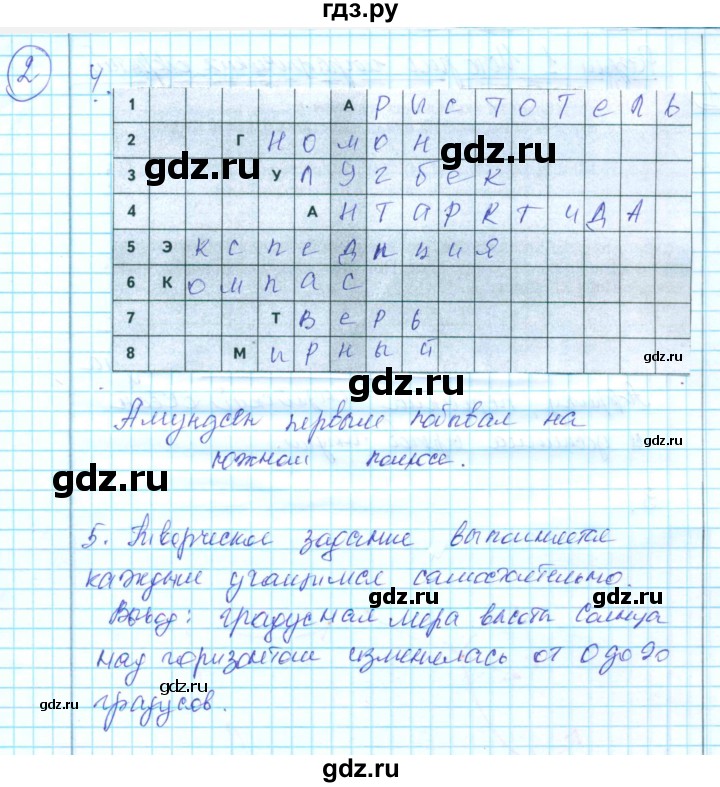 гдз.ру
2
4.
1 АРЫСТОТЕЛЬ
2 ГНОМОН
3 УЛУГБЕК
4 АНТАРКТИДА
5 ЭКСПЕДИЦИЯ
6 КОМПАС
7 ТВЕРЬ
8 МИРНЫЙ
Амундсен первым побывал на
южном полюсе.
5. Творческое задание выполняется
каждым учащимся самостоятельно.
Вывод: градусная мера высоты Солнца
над горизонтом изменялась от 0 до 90
градусов.
gdz.ru
gdz.ru
gdz.ru
gdz.ru
gdz.ru
gdz.ru
gdz.ru
gdz.ru
gdz.ru
gdz.ru